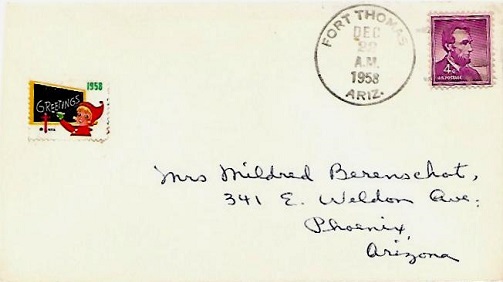 FORT THOMAS
DEC
A.M.
1958
ARIZ.
4¢
U.S. POSTAGE
1958
GREETINGS
Mrs Mildred Berenschot,
341 E. Weldon Ave.
Phoenix,
Arizona